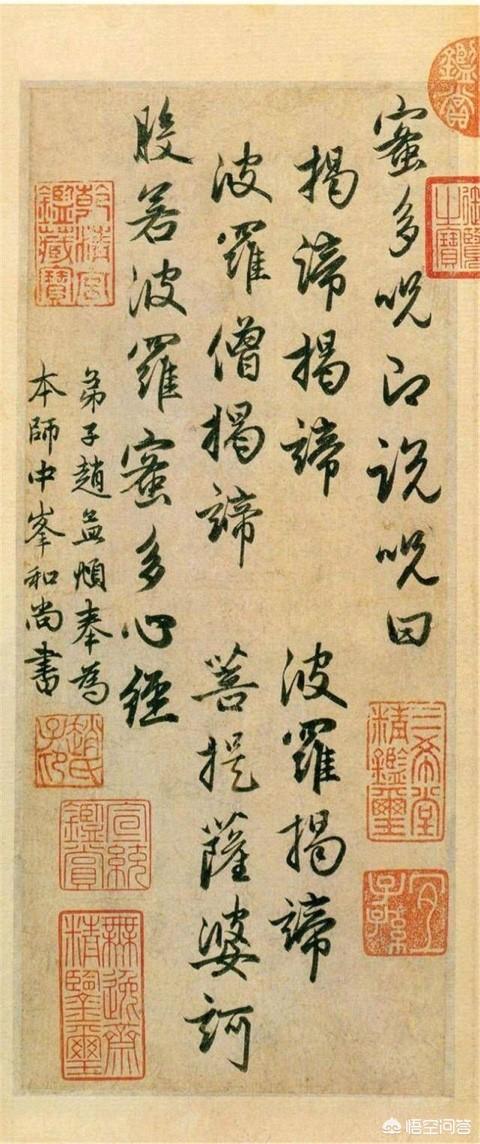 蜜多呪即說呪曰
揭諦揭諦 波羅揭諦
波羅僧揭諦 菩提薩婆訶
般若波羅蜜多心經
弟子趙孟頫奉為
本師中峯和尚書
鑑賞
御覽之寶
三希堂精鑑璽
宜子孫
乾清宮鑑藏寶
趙氏子昂
宣統鑑賞
無逸齋精鑒璽
悟空问答